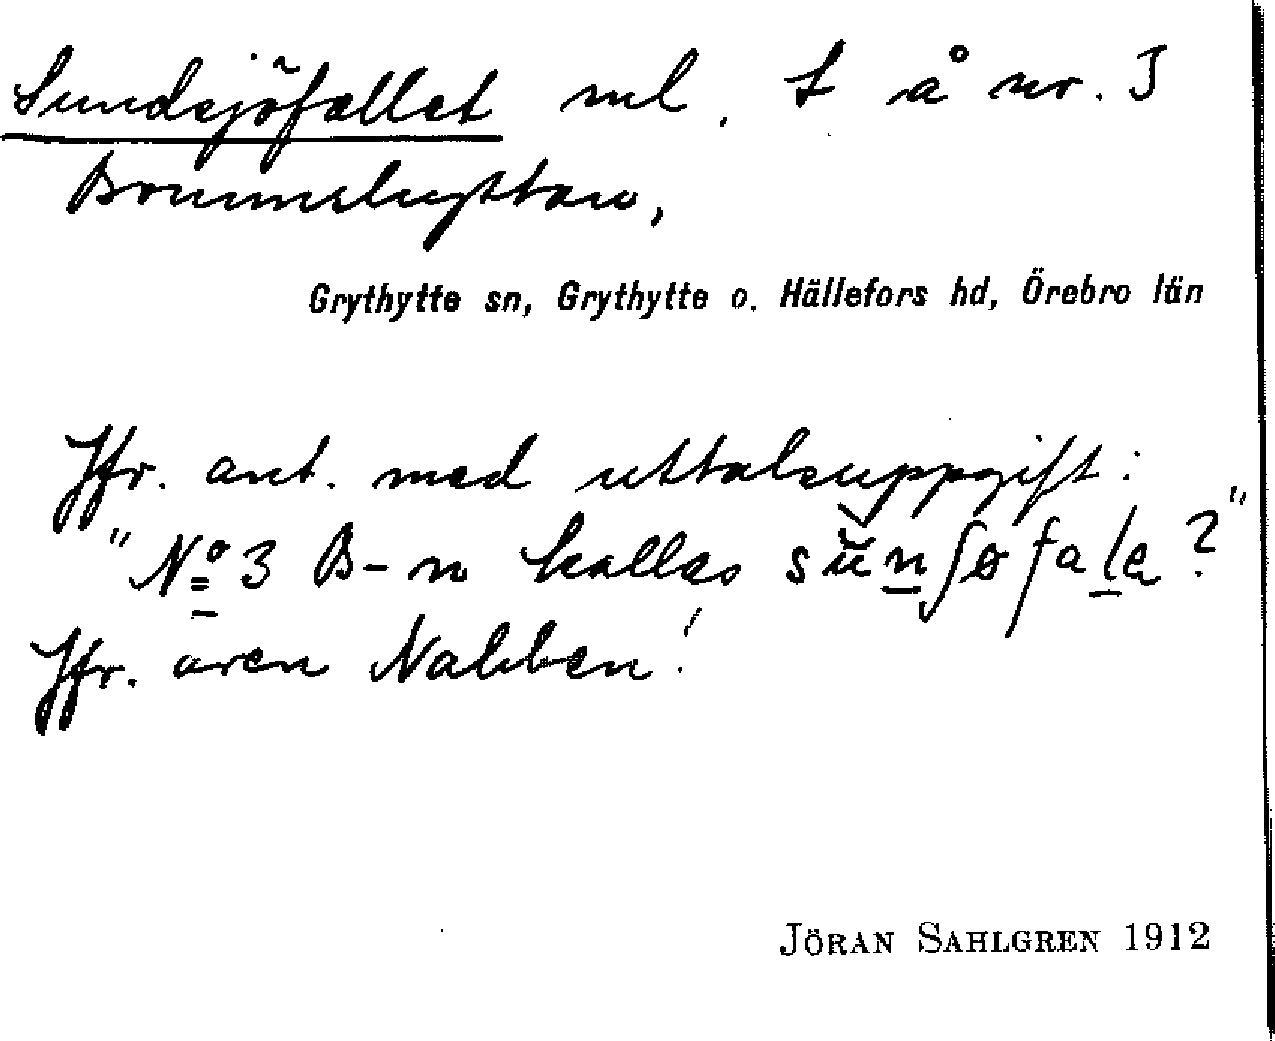 Sundsjöfallet ml. t å nr. 3
Bonnelhyttan,
Grythytte sn, Grythytte o. Hällefors hd, Örebro län
Jfr. ant. med uttalsuppgift:
"Nº 3 B-n kallas sŭnʃøfala?"
Jfr. även Nabben!
JÖRAN SAHLGREN 1912